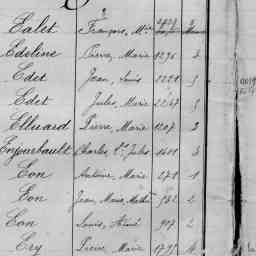 Ealet François, Mie
Edeline Pierre, Marie 1296 3
Edet Jean, Louis 3
Edet Jules, Marie 2247 3
Elluard Pierre, Marie 1207 3
Enjombault Charles, Jules 1
Eon Antoine, Marie 278 1
Eon Jean, Marie, Mathu 582 2
Eon Louis, Aimé 907 2
Ery Pierre, Marie